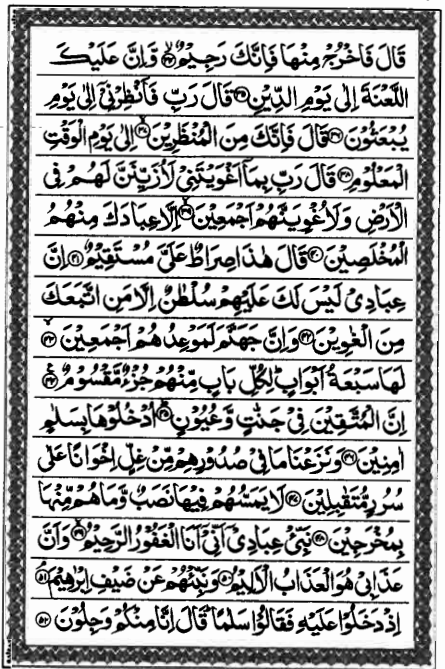 قَالَ فَاخۡرُجۡ مِنۡهَا فَاِنَّكَ رَجِيۡمٌ ۙ‏﴿۳۴﴾ وَّاِنَّ عَلَيۡكَ
اللَّعۡنَةَ اِلٰى يَوۡمِ الدِّيۡنِ‏﴿۳۵﴾ قَالَ رَبِّ فَاَنۡظِرۡنِىۡۤ اِلٰى يَوۡمِ
يُبۡعَثُوۡنَ‏﴿۳۶﴾ قَالَ فَاِنَّكَ مِنَ الۡمُنۡظَرِيۡنَۙ‏﴿۳۷﴾ اِلٰى يَوۡمِ الۡوَقۡتِ
الۡمَعۡلُوۡمِ‏﴿۳۸﴾ قَالَ رَبِّ بِمَاۤ اَغۡوَيۡتَنِىۡ لَاُزَيِّنَنَّ لَهُمۡ فِى
الۡاَرۡضِ وَلَاُغۡوِيَنَّهُمۡ اَجۡمَعِيۡنَۙ‏﴿۳۹﴾ اِلَّا عِبَادَكَ مِنۡهُمُ
الۡمُخۡلَصِيۡنَ‏﴿۴۰﴾ قَالَ هٰذَا صِرَاطٌ عَلَىَّ مُسۡتَقِيۡمٌ‏﴿۴۱﴾ اِنَّ
عِبَادِىۡ لَيۡسَ لَكَ عَلَيۡهِمۡ سُلۡطٰنٌ اِلَّا مَنِ اتَّبَعَكَ
مِنَ الۡغٰوِيۡنَ‏﴿۴۲﴾ وَاِنَّ جَهَنَّمَ لَمَوۡعِدُهُمۡ اَجۡمَعِيۡنَۙ‏﴿۴۳﴾
لَهَا سَبۡعَةُ اَبۡوَابٍؕ لِكُلِّ بَابٍ مِّنۡهُمۡ جُزۡءٌ مَّقۡسُوۡمٌ‏﴿۴۴﴾
اِنَّ الۡمُتَّقِيۡنَ فِىۡ جَنّٰتٍ وَّعُيُوۡنٍؕ‏﴿۴۵﴾ اُدۡخُلُوۡهَا بِسَلٰمٍ
اٰمِنِيۡنَ‏﴿۴۶﴾ وَنَزَعۡنَا مَا فِىۡ صُدُوۡرِهِمۡ مِّنۡ غِلٍّ اِخۡوَانًا عَلٰى
سُرُرٍ مُّتَقٰبِلِيۡنَ‏﴿۴۷﴾ لَا يَمَسُّهُمۡ فِيۡهَا نَصَبٌ وَّمَا هُمۡ مِّنۡهَا
بِمُخۡرَجِيۡنَ‏﴿۴۸﴾ نَبِّئۡ عِبَادِىۡۤ اَنِّىۡۤ اَنَا الۡغَفُوۡرُ الرَّحِيۡمُۙ‏﴿۴۹﴾ وَاَنَّ
عَذَابِىۡ هُوَ الۡعَذَابُ الۡاَلِيۡمُ‏﴿۵۰﴾ وَنَبِّئۡهُمۡ عَنۡ ضَيۡفِ اِبۡرٰهِيۡمَۘ‏﴿۵۱﴾
اِذۡ دَخَلُوۡا عَلَيۡهِ فَقَالُوۡا سَلٰمًاؕ قَالَ اِنَّا مِنۡكُمۡ وَجِلُوۡنَ‏﴿۵۲﴾